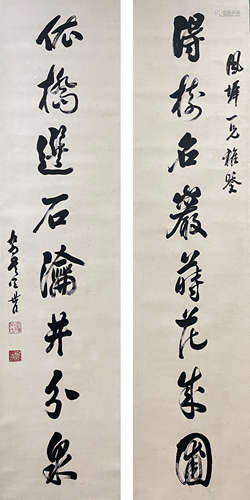 鳳墀一兄雅鑒
得樹名巖蒔花成圃
依橋選石瀹井分泉